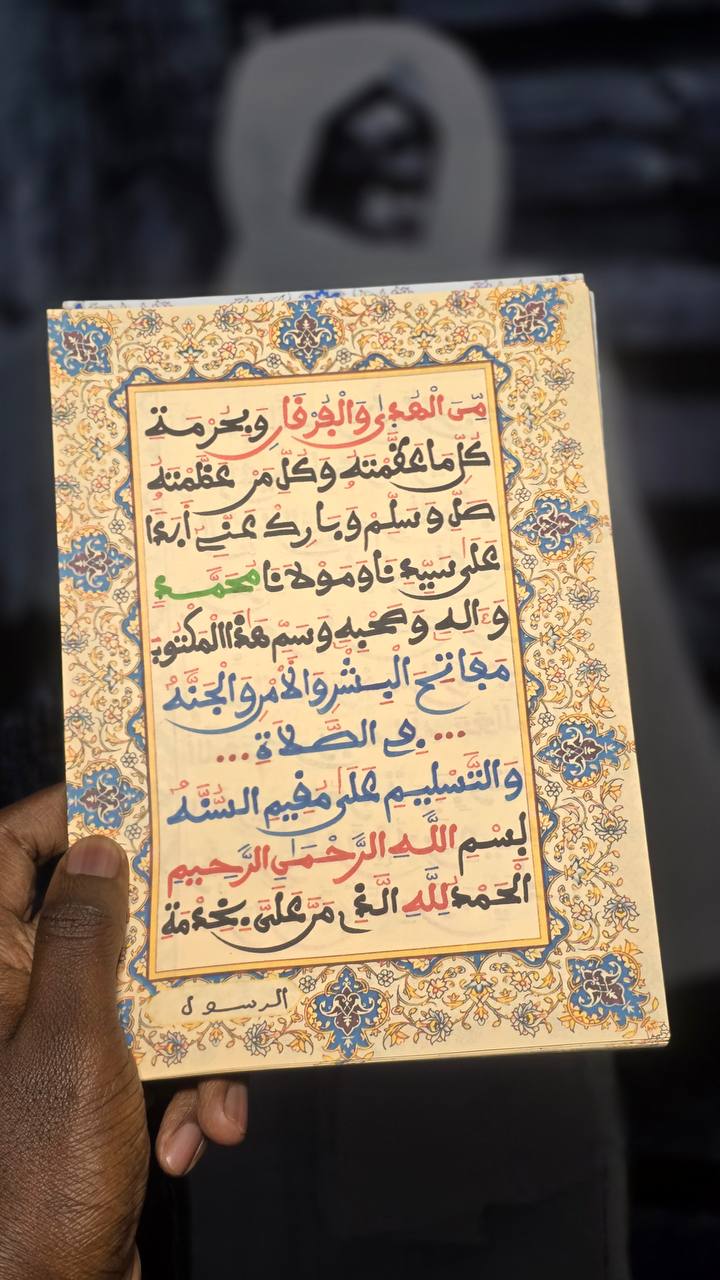 مِّنَ الْهُدَىٰ وَالْفُرْقَانِ وَبِحُرْمَةِ
كُلِّ مَا عَظَّمْتَهُ وَكُلِّ مَنْ عَظَّمْتَهُ
صَلِّ وَسَلِّمْ وَبَارِكْ عَنِّے أَبَدًا
عَلَىٰ سَيِّدِنَا وَمَوْلَانَا مُحَمَّدٍ
وَءَالِهِ وَصَحْبِهِ وَسَمِّ هَٰذَا الْمَكْتُوبَ
مَفَاتِحَ الْبِشْرِ وَالْأَمْنِ وَالْجَنَّه
... فِى الصَّلَاةِ ...
وَالتَّسْلِيمِ عَلَىٰ مُقِيمِ السُّنَّه
بِسْمِ اللَّهِ الرَّحْمَٰنِ الرَّحِيمِ
الْحَمْدُ لِلَّهِ الَّذِى مَنَّ عَلَىَّ بِخِدْمَةِ
الرسول